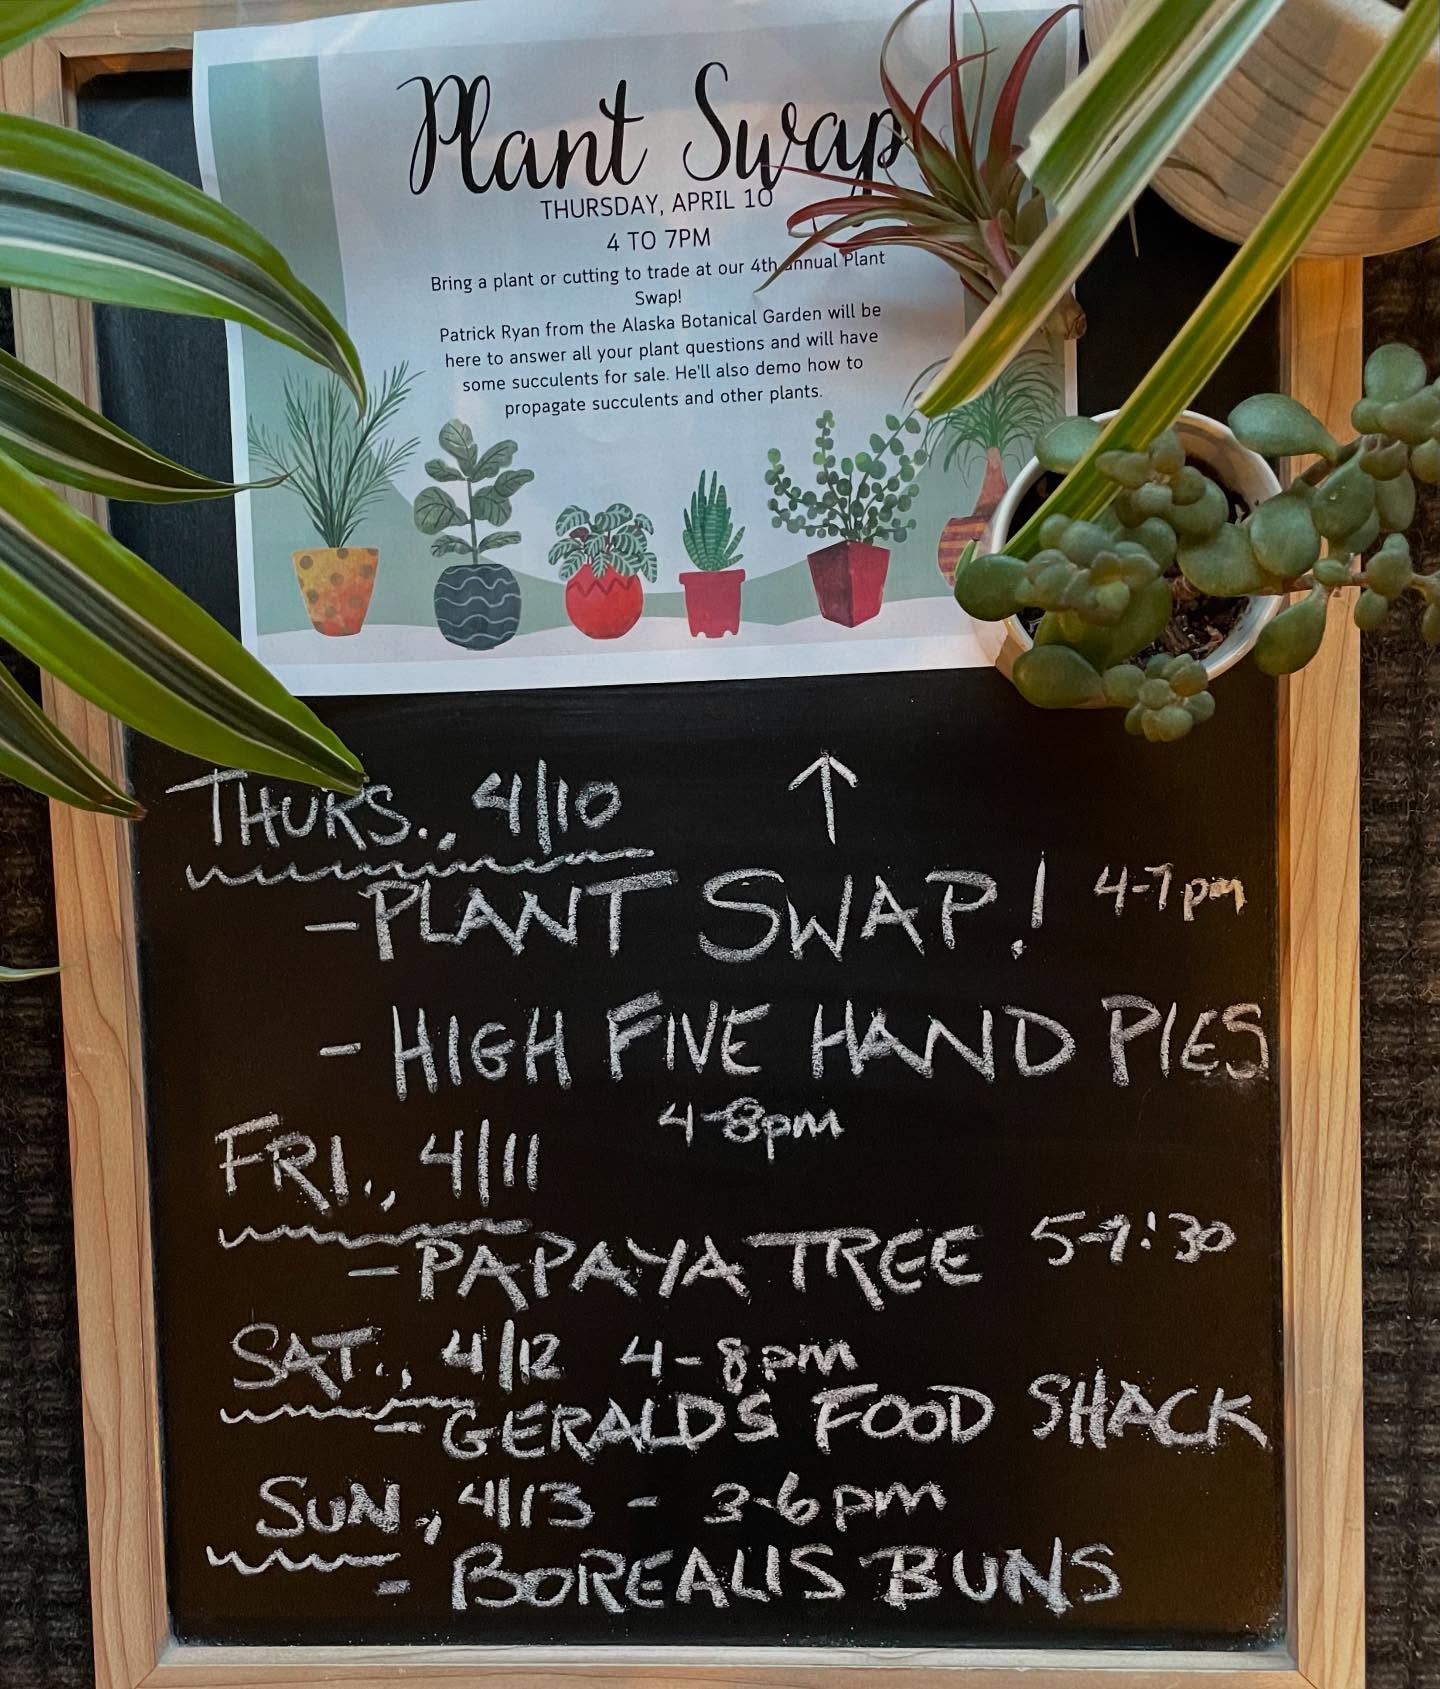 Plant Swap
THURSDAY, APRIL 10
4 TO 7PM
Bring a plant or cutting to trade at our 4th annual Plant
Swap!
Patrick Ryan from the Alaska Botanical Garden will be
here to answer all your plant questions and will have
some succulents for sale. He'll also demo how to
propagate succulents and other plants.
THURS., 4/10
-PLANT SWAP! 4-7pm
- HIGH FIVE HAND PIES
4-8pm
FRI., 4/11
-PAPAYA TREE 5-7:30
SAT., 4/12 4-8pm
-GERALD'S FOOD SHACK
SUN, 4/13 - 3-6pm
- BOREALIS BUNS